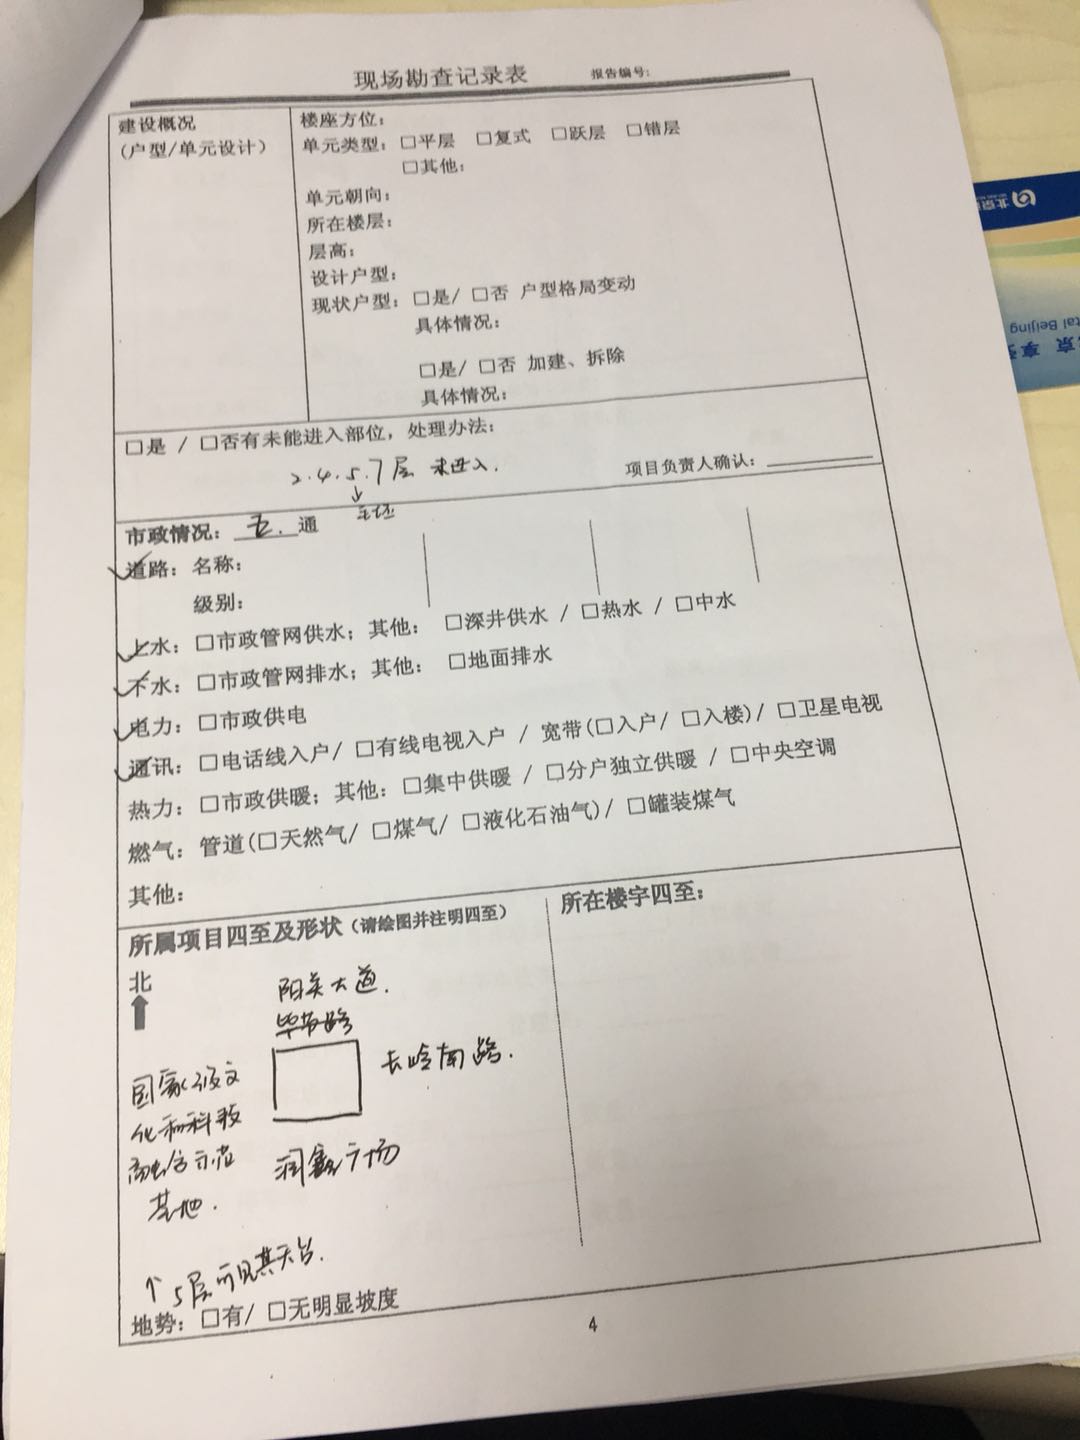 现场勘查记录表 报告编号:
建设概况
(户型/单元设计)
楼座方位:
单元类型: □平层 □复式 □跃层 □错层
□其他:
单元朝向:
所在楼层:
层高:
设计户型:
现状户型: □是/ □否 户型格局变动
具体情况:
□是/ □否 加建、拆除
具体情况:
□是 / □否有未能进入部位, 处理办法:
2.4.5.7层 未进入.
↓
项目负责人确认:
市政情况: 五. 通
道路: 名称:
级别:
上水: □市政管网供水; 其他: □深井供水 / □热水 / □中水
下水: □市政管网排水; 其他: □地面排水
电力: □市政供电
通讯: □电话线入户/ □有线电视入户 / 宽带(□入户/ □入楼)/ □卫星电视
热力: □市政供暖; 其他: □集中供暖 / □分户独立供暖 / □中央空调
燃气: 管道(□天然气/ □煤气/ □液化石油气)/ □罐装煤气
其他:
所属项目四至及形状 (请绘图并注明四至)
所在楼宇四至:
北
阳关大道.
长岭南路.
国家级文
化和科技
融合示范
基地.
润鑫广场
↑ 5层可见其天台.
地势: □有/ □无明显坡度
4
北京
tal Beijing
京 享